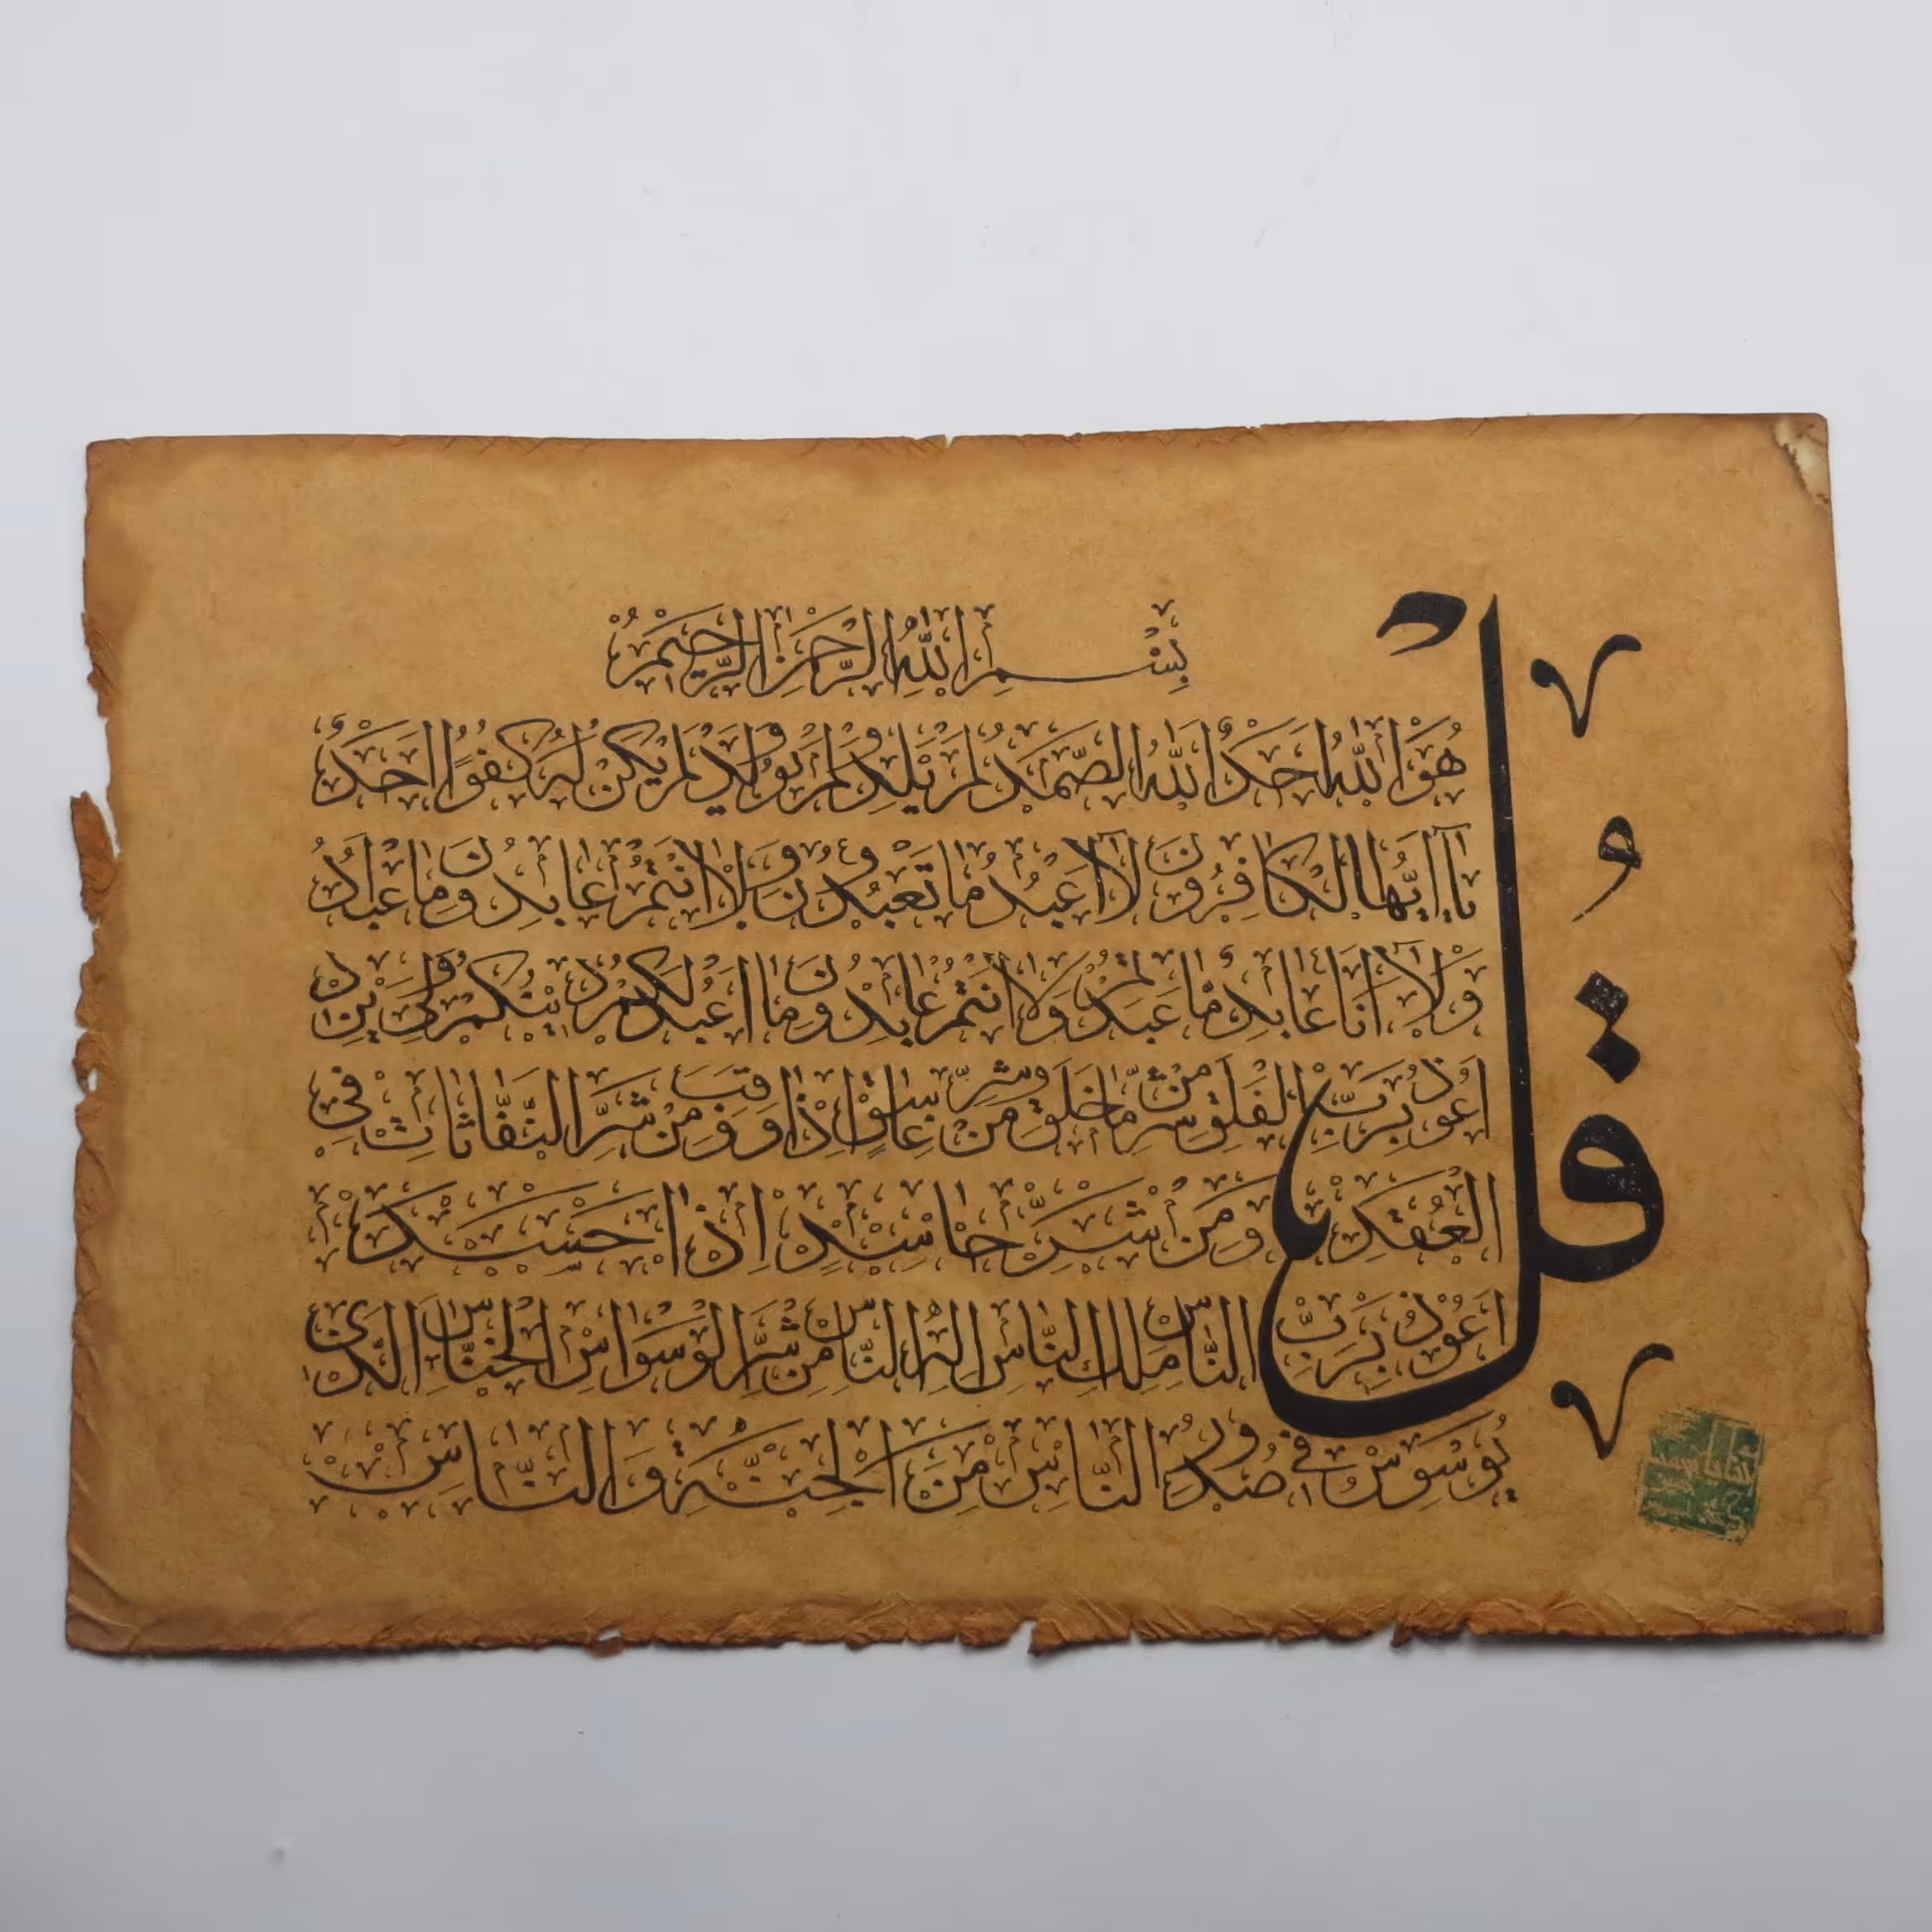 قُلْ
بِسْمِ اللّٰهِ الرَّحْمٰنِ الرَّحِيْمِ
هُوَ اللّٰهُ اَحَدٌ اَللّٰهُ الصَّمَدُ لَمْ يَلِدْ وَلَمْ يُوْلَدْ وَلَمْ يَكُنْ لَهُ كُفُوًا اَحَدٌ
يَآ اَيُّهَا الْكَافِرُوْنَ لَآ اَعْبُدُ مَا تَعْبُدُوْنَ وَلَآ اَنْتُمْ عَابِدُوْنَ مَا اَعْبُدُ
وَلَآ اَنَا عَابِدٌ مَا عَبَدْتُمْ وَلَا اَنْتُمْ عَابِدُوْنَ مَا اَعْبُدُ لَكُمْ دِيْنُكُمْ وَلِيَ دِيْنِ
اَعُوْذُ بِرَبِّ الْفَلَقِ مِنْ شَرِّ مَا خَلَقَ وَمِنْ شَرِّ غَاسِقٍ اِذَا وَقَبَ وَمِنْ شَرِّ النَّفَّاثَاتِ فِي
الْعُقَدِ وَمِنْ شَرِّ حَاسِدٍ اِذَا حَسَدَ
اَعُوْذُ بِرَبِّ النَّاسِ مَلِكِ النَّاسِ اِلٰهِ النَّاسِ مِنْ شَرِّ الْوَسْوَاسِ الْخَنَّاسِ الَّذِيْ
يُوَسْوِسُ فِيْ صُدُوْرِ النَّاسِ مِنَ الْجِنَّةِ وَالنَّاسِ